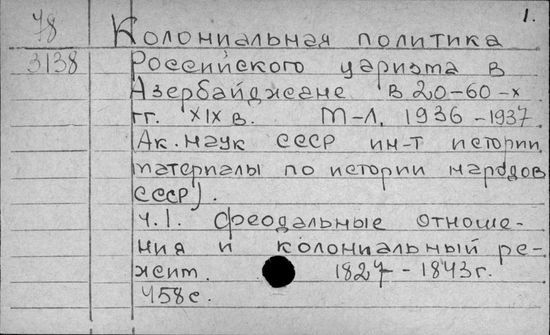 1.
78 Колониальная политика
3138 Российского царизма в
Азербайджане в 20-60-х
гг. XIX в. М-Л, 1936-1937
(Ак. наук СССР ин-т истории,
материалы по истории народов
СССР).
Ч.1. Феодальные отноше-
ния и колониальный ре-
жим. 1827-1843г.
458с.